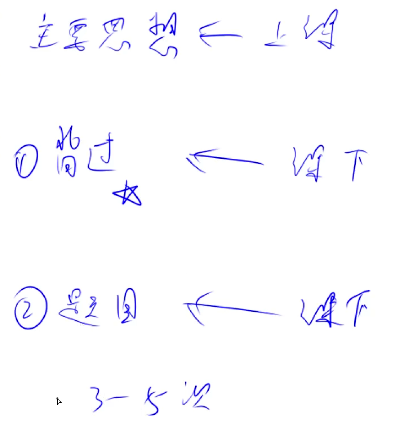 主要思想 ← 上课
① 背过 ☆ ← 课下
② 是图 ← 课下
3-5次